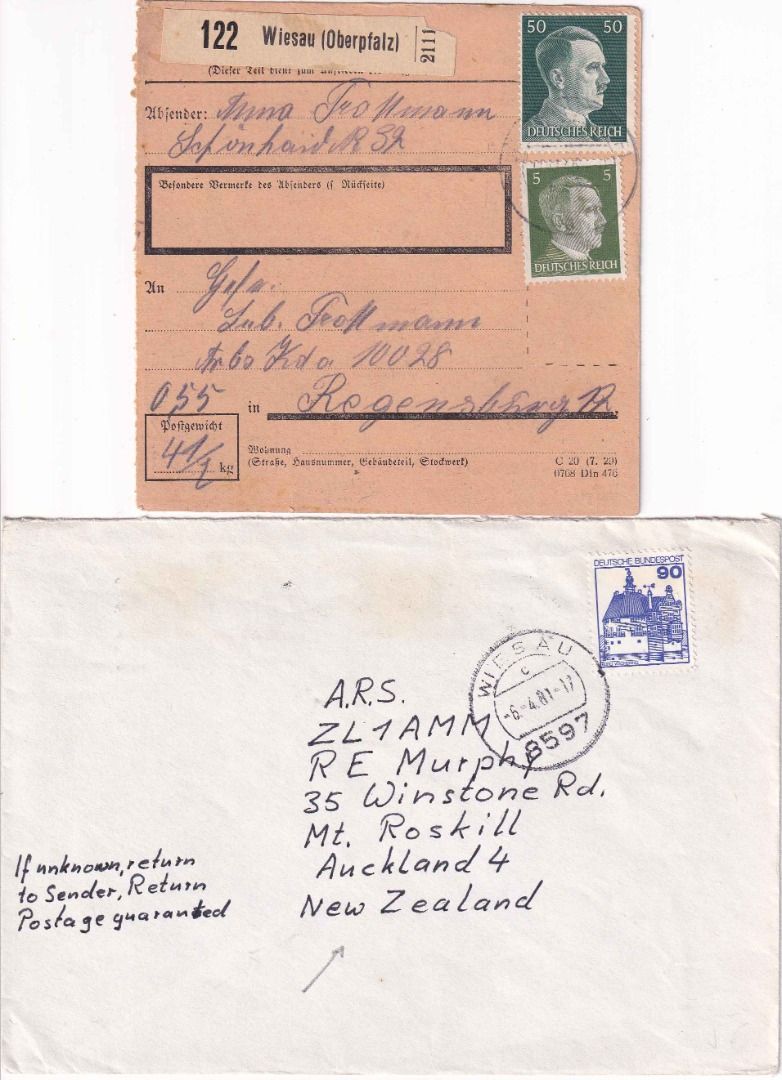 122 Wiesau (Oberpfalz) 2111
50 50
DEUTSCHES REICH
(Dieser Teil dient zum
Absender: Anna Trottmann
Schönhaid N 32
Besondere Vermerke des Absenders (s Rückseite)
5 5
DEUTSCHES REICH
An Gefr.
Trottmann
Kda 10028
0,55
in Regensburg
Postgewicht
4 1/2 kg
Wohnung
(Straße, Hausnummer, Gebäudeteil, Stockwerk)
C 20 (7. 29)
0768 Din 476
DEUTSCHE BUNDESPOST
90
WIESAU
c
-6.-4.81-17
8597
A.R.S.
ZL1AMM
RE Murphy
35 Winstone Rd.
Mt. Roskill
Auckland 4
New Zealand
If unknown, return
to Sender, Return
Postage guaranted